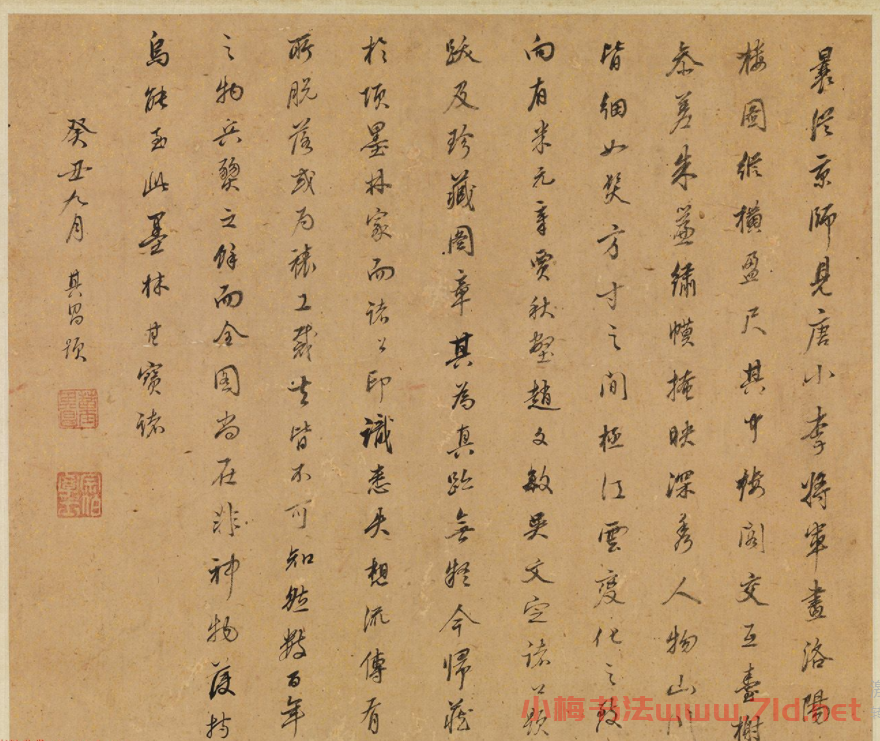 曩從京師見唐小李將軍畫洛陽
樓圖縱橫盈尺其中樓閣交互臺榭
參差朱簾繡幙掩映深秀人物山川
皆細如髮方寸之間極江雲變化之致
向有米元章賈秋壑趙文敏吳文定諸公題
跋及珍藏圖章其為真跡無疑今歸藏
於項墨林家而諸公印識悉失想流傳有
所脫落或為裱工裁去皆不可知然數百年
之物兵燹之餘而全圖尚在非神物護持
烏能至此墨林其寶諸
癸丑九月 其昌題
小梅书法www.7ld.net